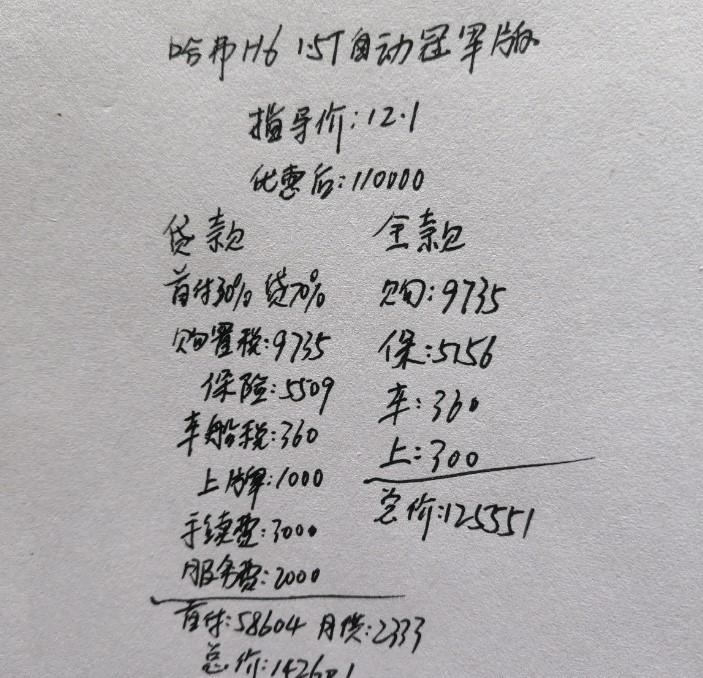 哈弗H6 1.5T自动冠军版
指导价:12.1
优惠后:110000
贷款
首付30% 贷70%
购置税:9735
保险:5509
车船税:360
上牌:1000
手续费:3000
服务费:2000
首付:58604 月供:2333
总价:142601
全款
购:9735
保:5156
车:360
上:300
总价:125551